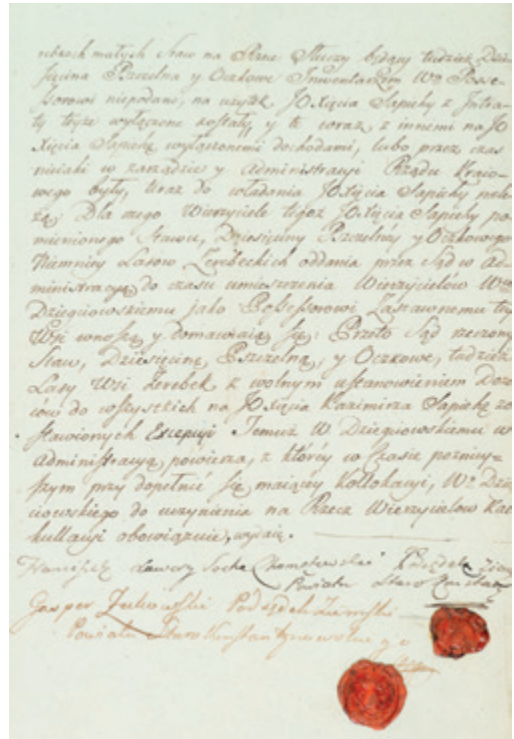 rebech małych Staw na Rzece Słuczy będący tudzież Dzie-
sięcina Pszczelna y Oczkowe Inwentarzem Wu Posse-
ssorowi niepodane, na użytek JO Xięcia Sapiehy z Intra-
ty teyże wyłączone zostały, y te wraz z innemi na JO
Xięcia Sapiehę wyłączonemi dochodami, lubo przez czas
nieiaki w zarządzie y Administracyi Rządu Kraio-
wego były, teraz do władania JO Xięcia Sapiehy nale-
żą. Dla czego Wierzyciele tegoż JO Xięcia Sapiehy po-
mienionego Stawu, Dziesięciny Pszczelnéy y Oczkowego
Lasów Zerebeckich oddania przez Sąd w Ad-
ministracyą do czasu umieszczenia Wierzycielów Wu
Dzięgiowskiemu jako Possessorowi Zastawnemu tey
Wsi wnoszą y domawiaią się: Przeto Sąd rzeczony
Staw, Dziesięcinę Pszczelną, y Oczkowe, tudzież
Lasy Wsi Zerebek z wolnym ustanowieniem Dozo-
ców do wszystkich na JO Xięcia Kazimierza Sapiehę zo-
stawionych Excepcyi Temuż W Dzięgiowskiemu w
Administracyą powierza, z któréy w czasie pozniey-
szym przy dopełnić się maiącey Kollokacyi, Wo Dzię-
ciowskiego do uczynienia na Rzecz Wierzycielów Kal-
kullacyi obowiązuie, wydaie.
Franciszek Xawery Socha Chomętowski Podsędek Ziem
Powiatu Staro Konstan
Gasper Podsędek Ziemski
Powiatu Staro Konstantynowskiego